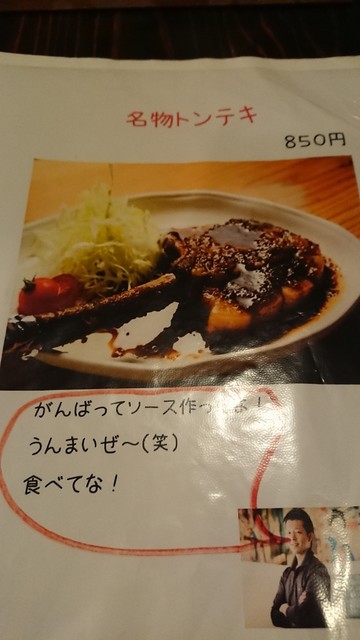 名物トンテキ
850円
がんばってソース作ったよ!
うんまいぜ〜(笑)
食べてな!